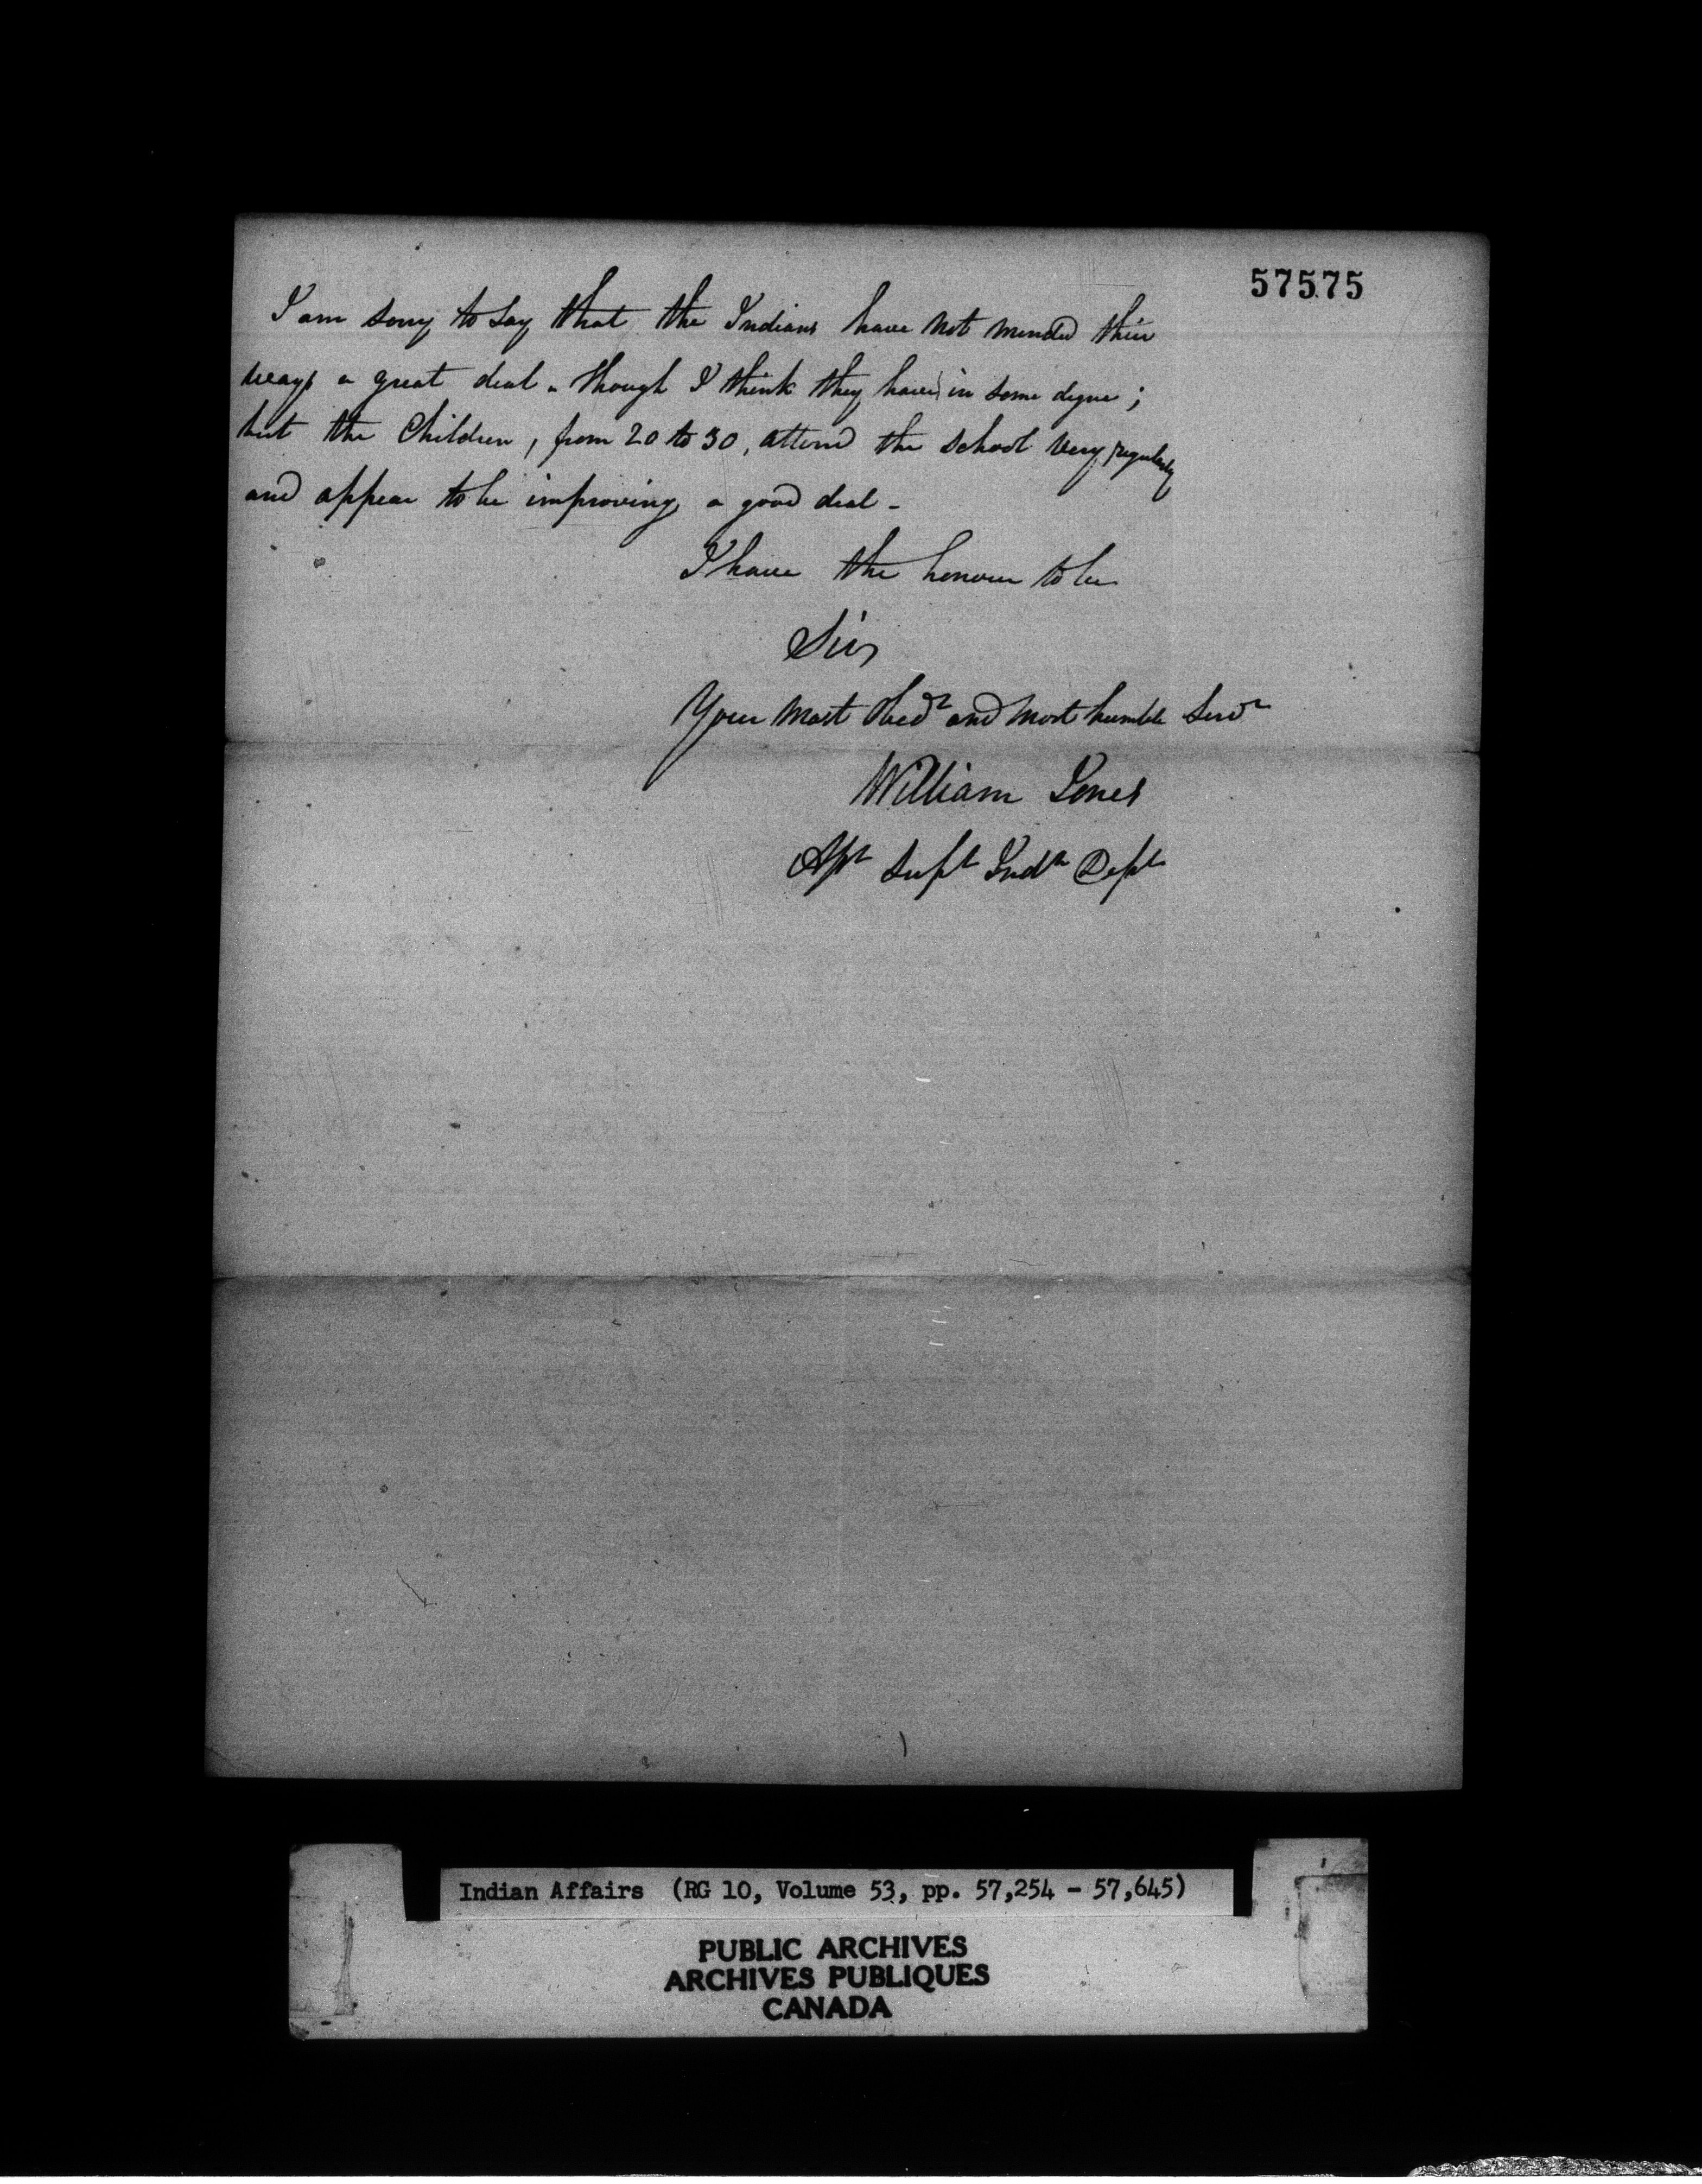 57575
I am sorry to say that the Indians have not mended their
ways a great deal - though I think they have in some degree;
but the Children, from 20 to 30, attend the school very regularly
and appear to be improving a good deal -
I have the honour to be
Sir
Your most obedt and most humble Servt
William Jones
Asst Supt Indn Dept
Indian Affairs (RG 10, Volume 53, pp. 57,254 - 57,645)
PUBLIC ARCHIVES
ARCHIVES PUBLIQUES
CANADA